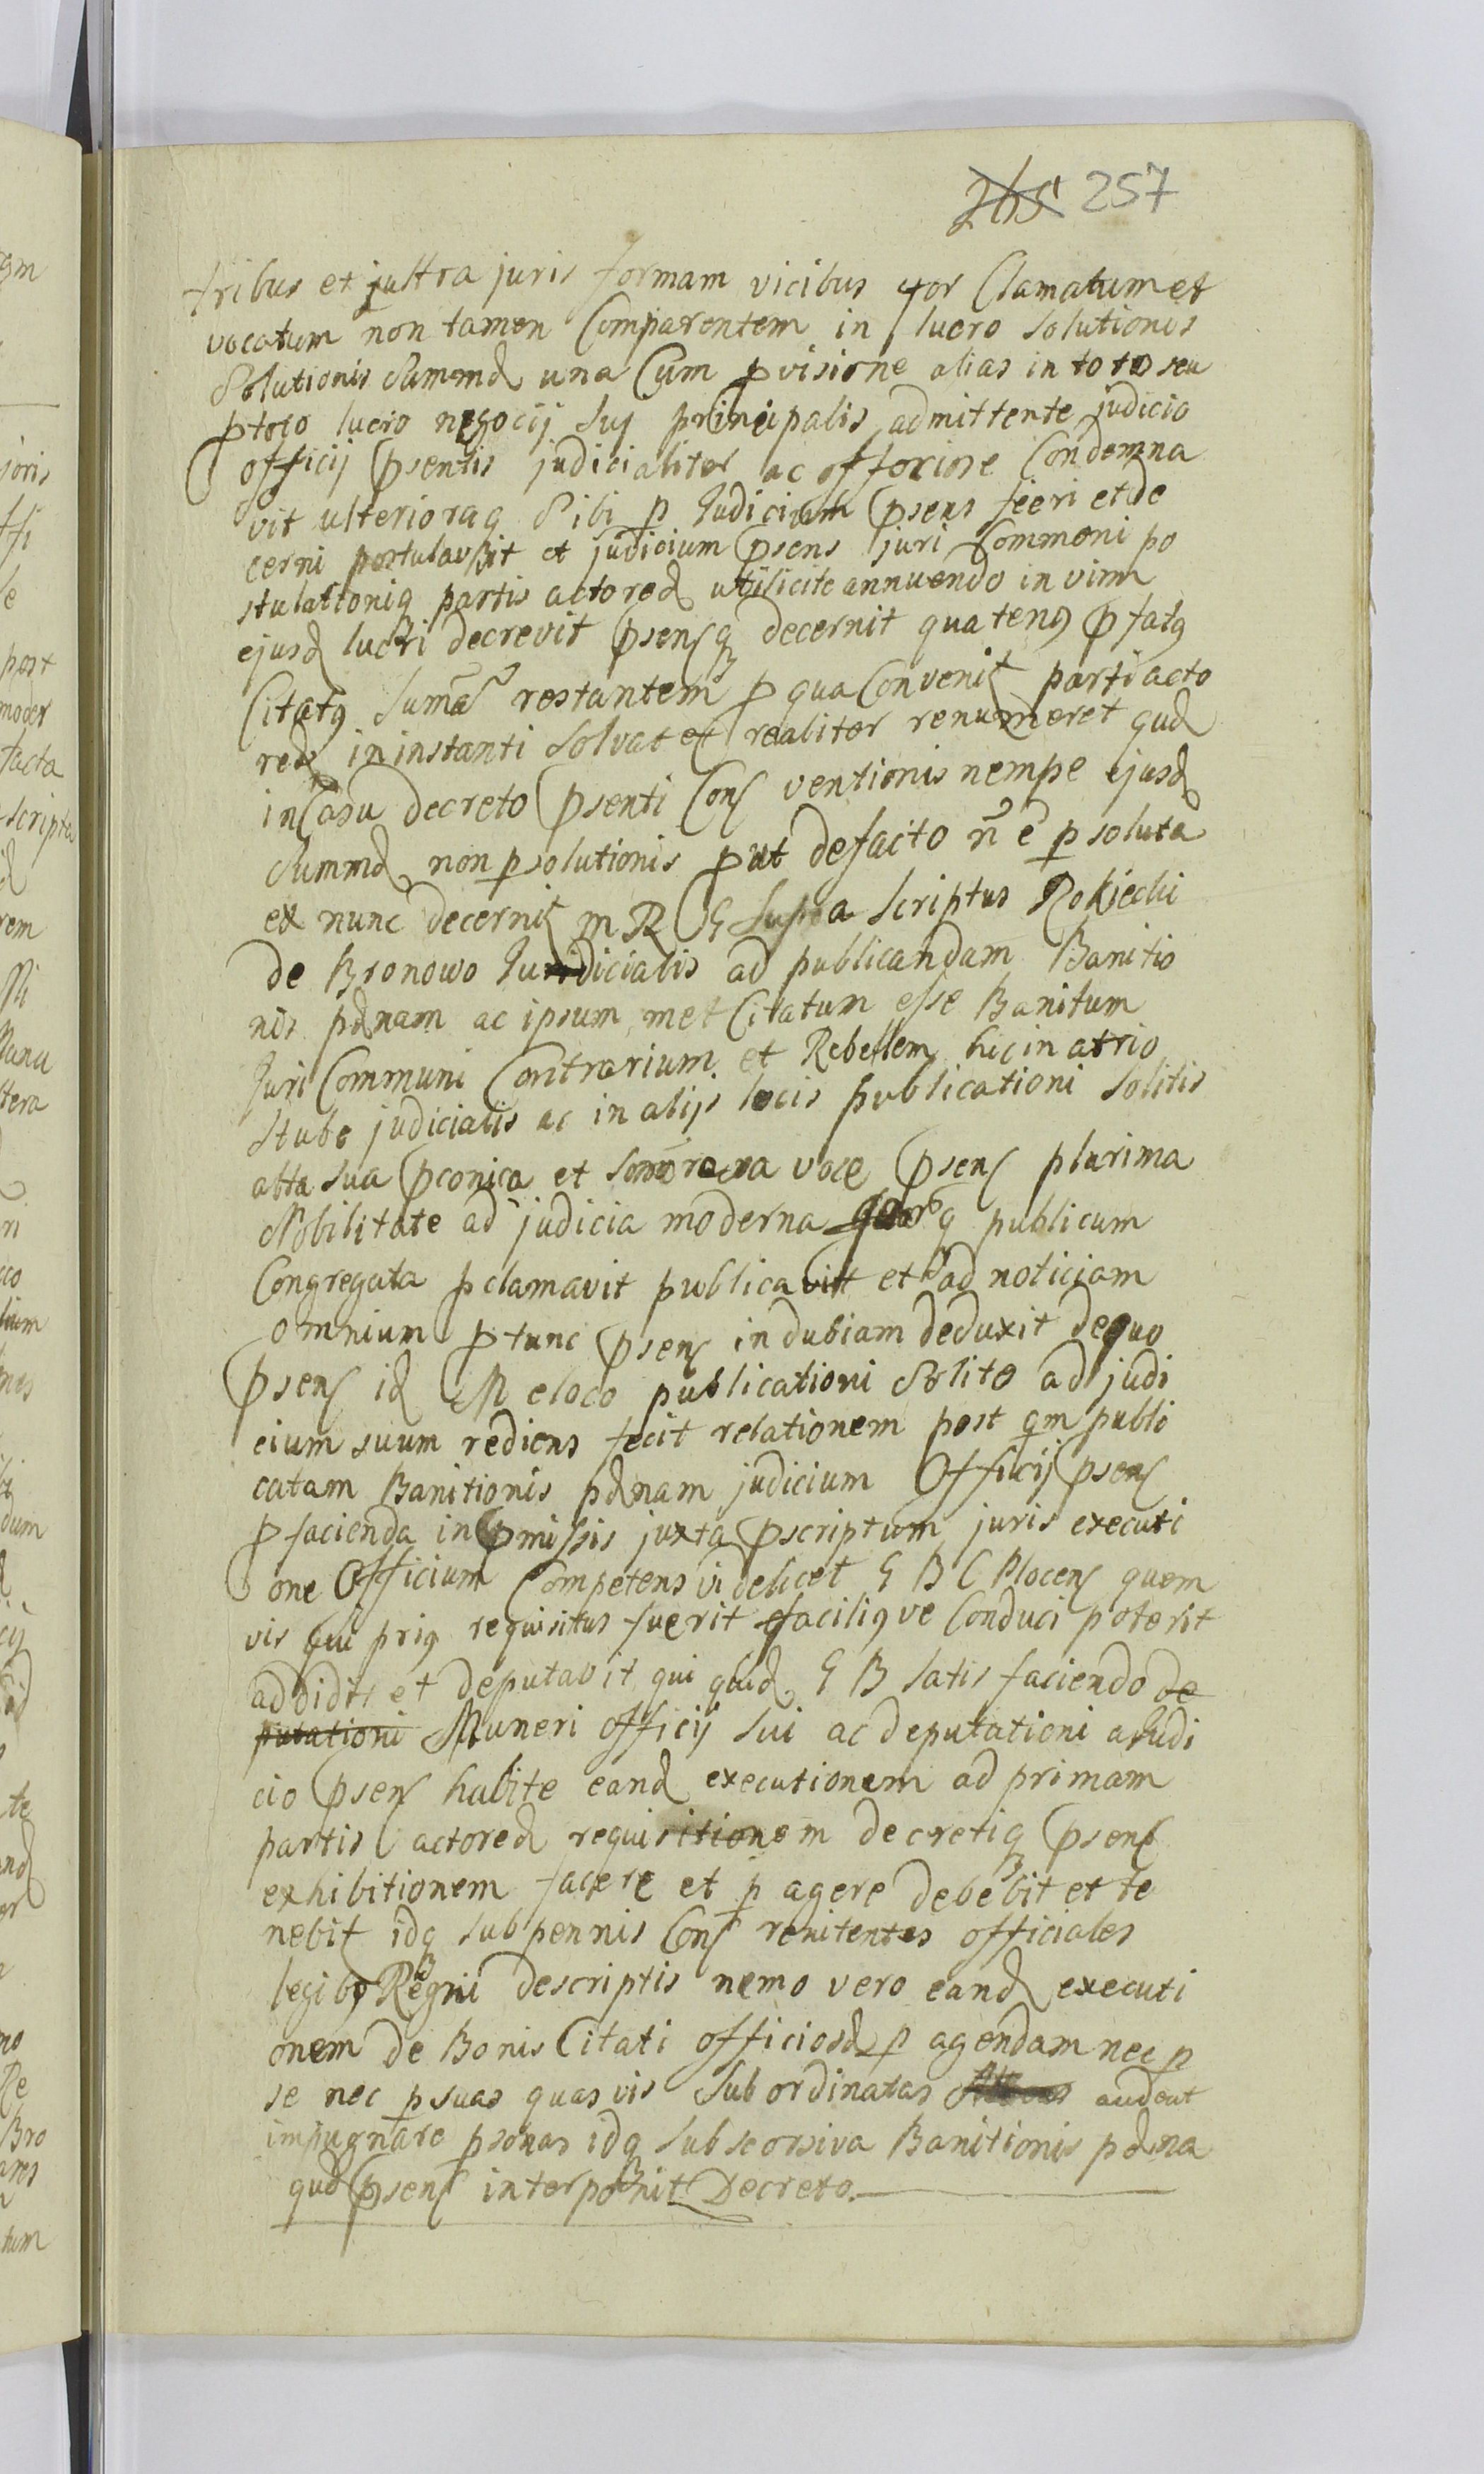 265 257
tribus et juxtra juris formam vicibus 4tor Clamatum et
vocatum non tamen Comparentem in lucro solutionis
Solutionis summæ una Cum pvisione alias in toto seu
ptoto lucro negocij suj principalis admittente judicio
officij psentis judicialiter ac offoriose Condemna
vit ulterioraq Sibi p Judicium psens fieri et de
cerni postulavit et judicium psens juri Commoni po
stulationiq partis actoreæ uti licite annuendo in vim
ejusd lucri decrevit psensq decernit quatenq pfatq
Citatq sumã restantem p qua Convenit parti acto
reæ in instanti solvat et realiter renumeret qud
in Casu decreto psenti Cons ventionis nempe ejusd
summæ non psolutionis put defacto ñ ẽ psoluta
ex nunc decernit m R G supra scriptus Rokiecki
de Bronowo Judicialis ad publicandam Banitio
nis pænam ac ipsum met Citatum esse Banitum
Juri Communi Contrarium et Rebellem hic in atrio
stube judicialis ac in alijs locis publicationi solitis
alta sua pconica et voce psens plurima
Nobilitate ad judicia moderna publicum
Congregata pclamavit publicavit et ad noticiam
omnium ptunc psens indubiam deduxit de quo
psens id M e loco publicationi Solito ad judi
cium suum rediens fecit relationem post qm publi
catam Banitionis pænam judicium Officij psens
p facienda in pmissis juxta pscriptum juris executi
one Officium Competens videlicet G B C Plocens quem
vis qui priq requisitus fuerit facilique Conduci poterit
addidit et deputavit qui quid G B satis faciendo de
putationi Muneri officij sui ac deputationi a Judi
cio psens habite eand executionem ad primam
partis actoreæ requisitionem decretiq psens
exhibitionem facere et p agere debebit et te
nebit idq sub pennis Cons renitentes officiales
legibq Regni descriptis nemo vero eand executi
onem de Bonis Citati officiosæ p agendam nec p
se nec p suas quasvis subordinatas audeat
impugnare psonas idq sub seorsiva Banitionis pæna
qud psens interponit Decreto.